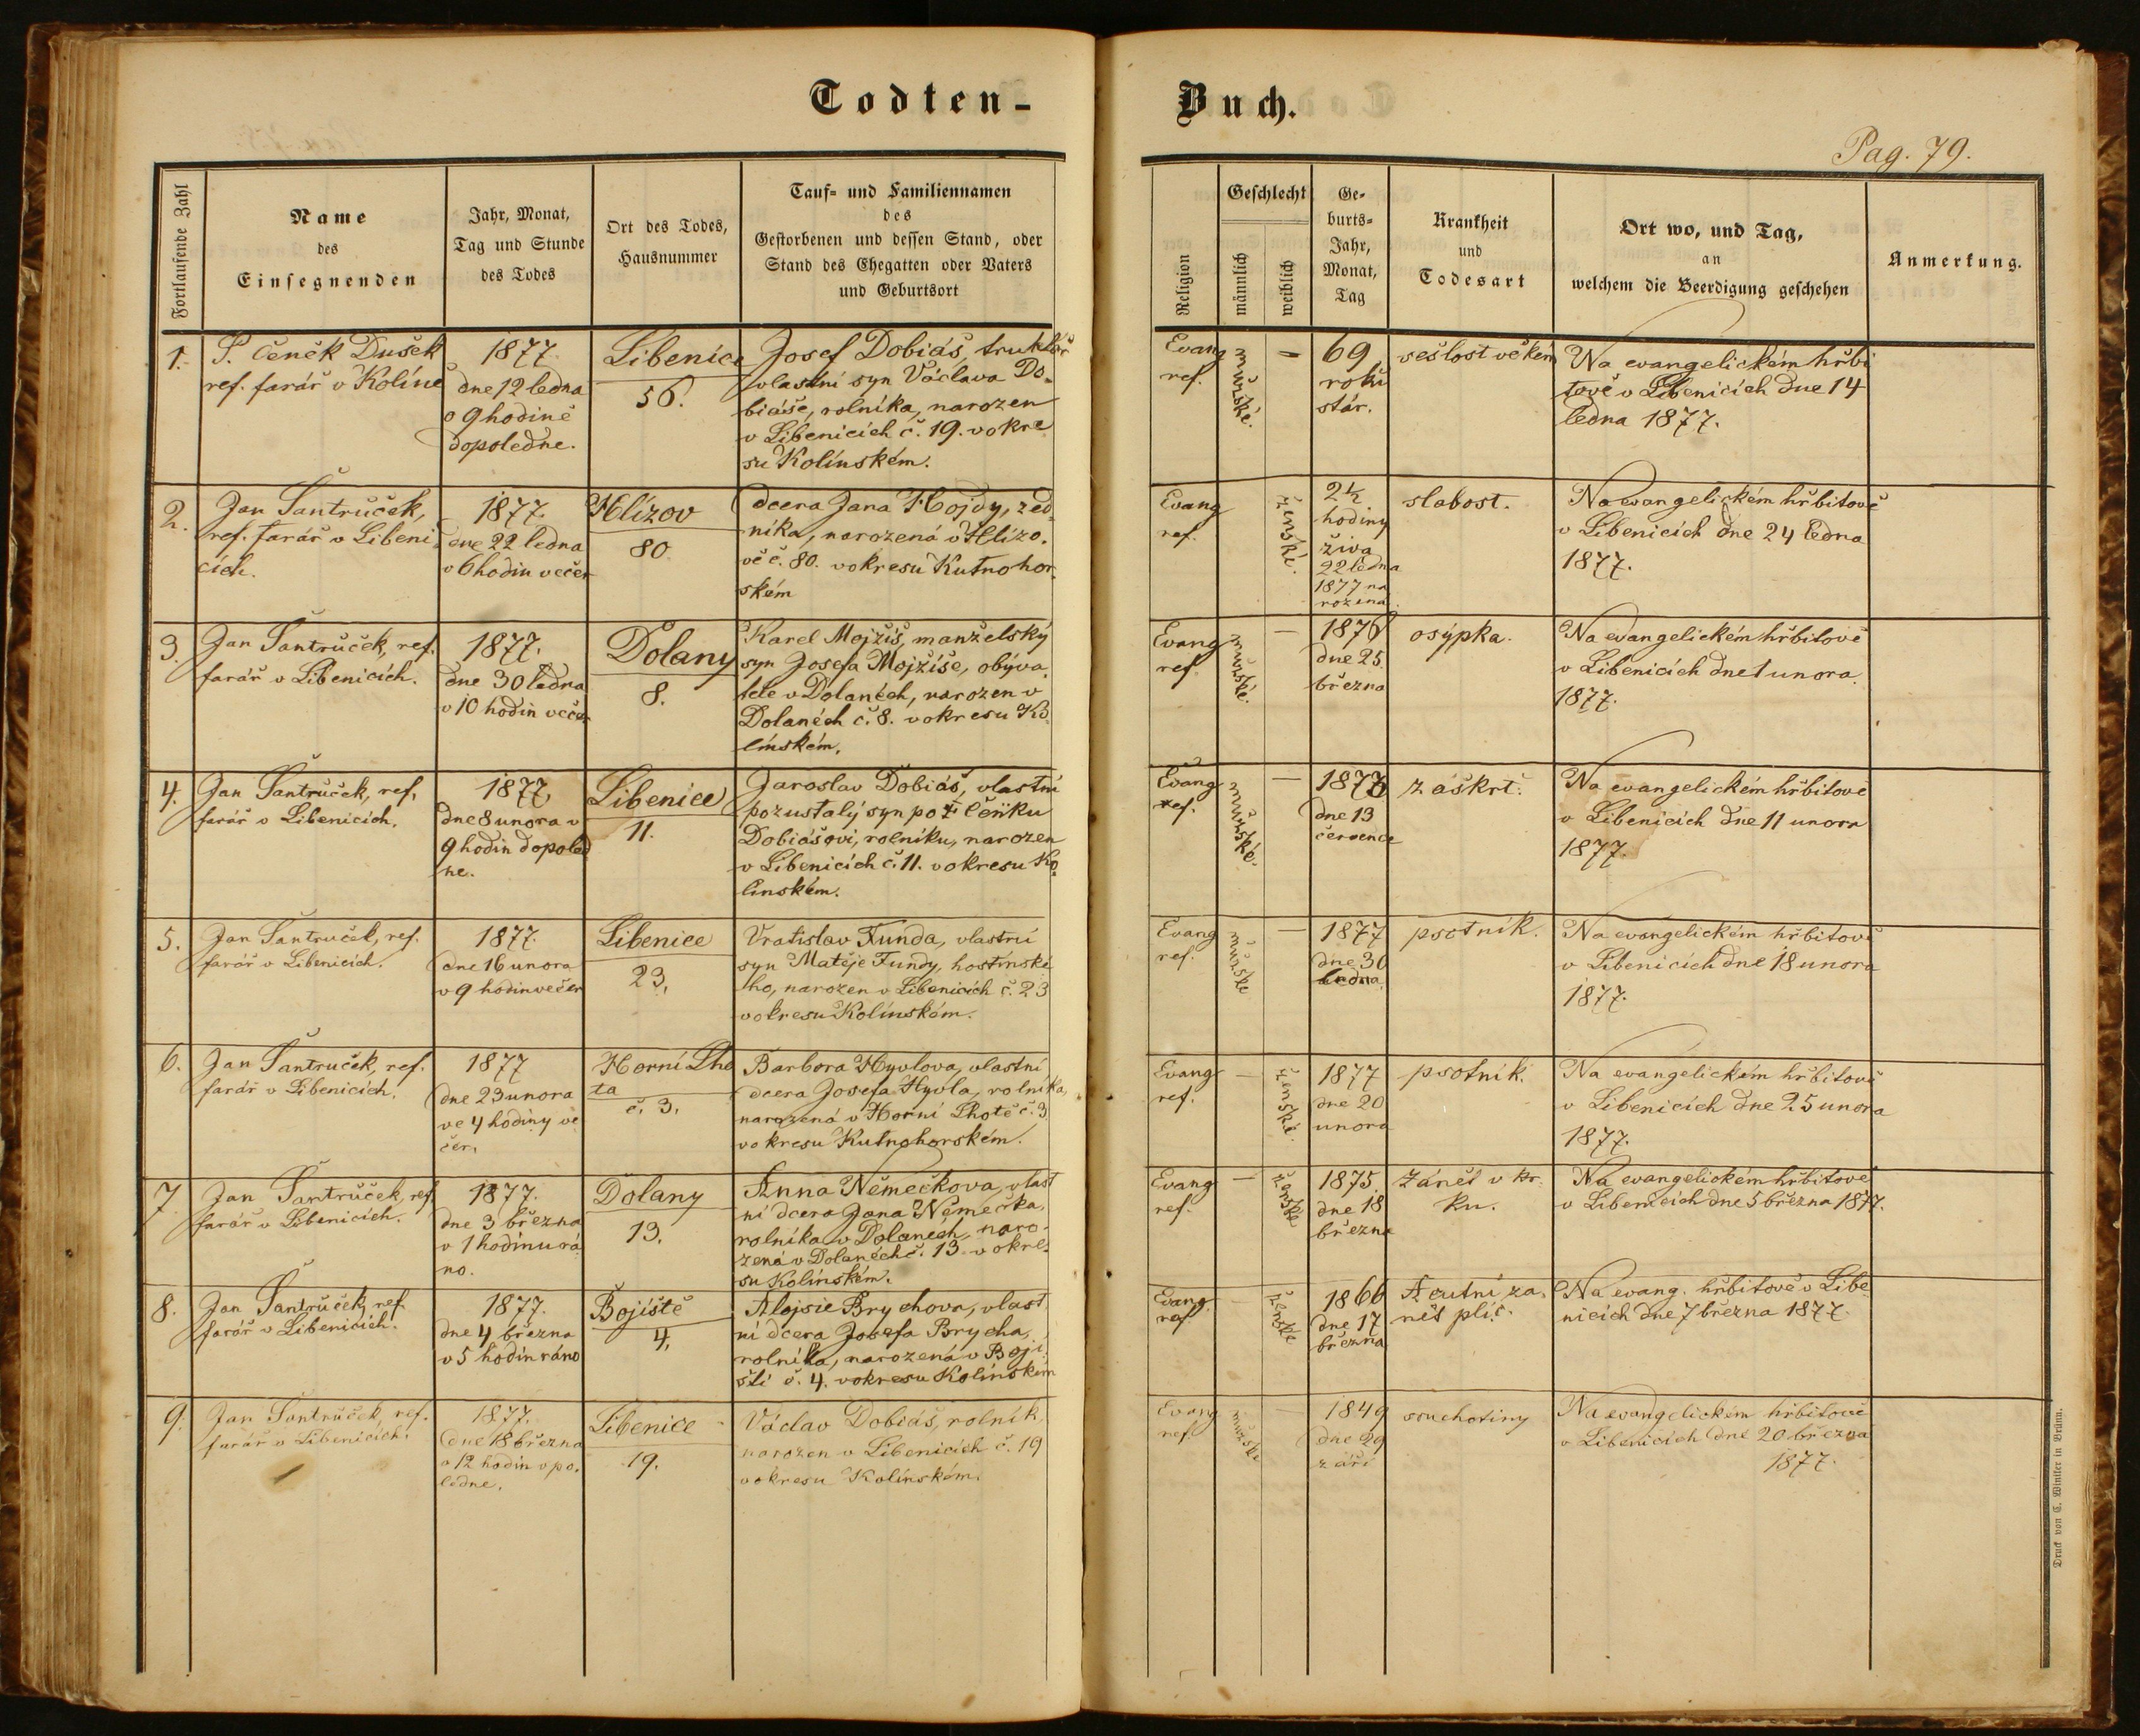 Todten-
Buch.
Pag. 79.
Fortlaufende Zahl
Name
des
Einsegnenden
Jahr, Monat,
Tag und Stunde
des Todes
Ort des Todes,
Hausnummer
Tauf= und Familiennamen
des
Gestorbenen und dessen Stand, oder
Stand des Ehegatten oder Vaters
und Geburtsort
Religion
Geschlecht
männlich
weiblich
Ge-
burts=
Jahr,
Monat,
Tag
Krankheit
und
Todesart
Ort wo, und Tag,
an
welchem die Beerdigung geschehen
Anmerkung.
1.
P. Čeněk Dušek
ref. farář v Kolíně
1877.
dne 12 ledna
o 9 hodině
dopoledne.
Libenice
56.
Josef Dobiáš, truhlář
vlastní syn Václava Do-
biáše, rolníka, narozen
v Libenicích č. 19. v okre
su Kolínském.
Evang
ref.
mužské.
69
roků
stár.
sešlost věkem
Na evangelickém hřbi
tově v Libenicích dne 14
ledna 1877.
2.
Jan Šantrůček,
ref. farář v Libeni
cích.
1877.
dne 22 ledna
v 6 hodin večer
Hlízov
80.
dcera Jana Hojdy, zed-
níka, narozená v Hlízo-
vě č. 80. v okresu Kutnohor-
ském
Evang
ref.
ženské.
2½
hodiny
živa
22 ledna
1877 na
rozena.
slabost.
Na evangelickém hřbitově
v Libenicích dne 24 ledna
1877.
3.
Jan Šantrůček, ref.
farář v Libenicích.
1877.
dne 30 ledna
v 10 hodin večer
Dolany
8.
Karel Mojžíš, manželský
syn Josefa Mojžíše, obýva-
tele v Dolanech, narozen v
Dolanech č. 8. v okresu Ko-
línském.
Evang
ref.
mužské.
1876
dne 25.
března
osýpka.
Na evangelickém hřbitově
v Libenicích dne 1 unora
1877.
4.
Jan Šantrůček, ref.
farář v Libenicích.
1877.
dne 8 unora v
9 hodin dopoled
ne.
Libenice
11.
Jaroslav Dobiáš, vlastní
pozustalý syn po † Čeňku
Dobiášovi, rolníku, narozen
v Libenicích č. 11. v okresu Ko-
línském.
Evang
ref.
mužské.
1876
dne 13
července
záškrt.
Na evangelickém hřbitově
v Libenicích dne 11 unora
1877.
5.
Jan Šantruček, ref.
farář v Libenicích.
1877.
dne 16 unora
v 9 hodin večer
Libenice
23.
Vratislav Funda, vlastní
syn Matěje Fundy, hostinské
ho, narozen v Libenicích č. 23
v okresu Kolínském.
Evang
ref.
mužské
1877
dne 30
ledna.
psotník.
Na evangelickém hřbitově
v Libenicích dne 18 unora
1877.
6.
Jan Šantruček, ref.
farář v Libenicích.
1877
dne 23 unora
ve 4 hodiny ve
čer.
Horní Lho
ta
č. 3.
Barbora Hyvlova, vlastní
dcera Josefa Hyvla, rolníka,
narozená v Horní Lhotě č. 3
v okresu Kutnohorském.
Evang
ref.
ženské.
1877
dne 20
unora
psotník.
Na evangelickém hřbitově
v Libenicích dne 25 unora
1877.
7
Jan Šantrůček, ref
farář v Libenicích.
1877.
dne 3 března
v 1 hodinu rá
no.
Dolany
13.
Anna Němečkova, vlast
ní dcera Jana Němečka,
rolníka v Dolanech, naro-
zená v Dolanech č. 13 v okre-
su Kolínském.
Evang
ref.
ženské
1875.
dne 18
března
zánět v kr-
ku.
Na evangelickém hřbitově
v Libenicích dne 5 března 1877.
8.
Jan Šantrůček, ref.
farář v Libenicích.
1877.
dne 4 března
v 5 hodin ráno
Bojiště
4.
Aloisie Brychova, vlast
ní dcera Josefa Brycha,
rolníka, narozená v Boji
šti č. 4. v okresu Kolínském
Evang.
ref.
ženské
1866
dne 17
března
Acutní zá-
nět plic.
Na evang. hřbitově v Libe
nicích dne 7 března 1877.
9.
Jan Šantrůček, ref.
farář v Libenicích.
1877.
dne 18 března
o 12 hodin v po-
ledne.
Libenice
19.
Václav Dobiáš, rolník,
narozen v Libenicích č. 19
v okresu Kolínském.
Evang
ref.
mužské
1849
dne 29
září
souchotiny
Na evangelickém hřbitově
v Libenicích dne 20 března
1877.
Druck von C. Winiker in Brünn.